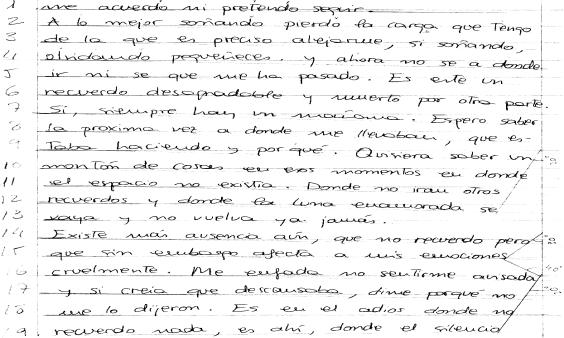 1 me acuerdo ni pretendo seguir.
2 A lo mejor soñando pierdo la carga que tengo
3 de la que es preciso alejarme, si soñando,
4 olvidando pequeñeces. y ahora no se a donde
5 ir ni se que me ha pasado. Es este un
6 recuerdo desagradable y muerto por otra parte.
7 Si, siempre hay un mañana. Espero saber
8 la proxima vez a donde me llevaban, que es-
9 taba haciendo y por qué. Quisiera saber un
10 montón de cosas en esos momentos en donde
11 el espacio no existía. Donde no iran otros
12 recuerdos y donde la luna enamorada se
13 vaya y no vuelva ya jamás.
14 Existe más ausencia aún, que no recuerdo pero
15 que sin embargo afecta a mis emociones
16 cruelmente. Me enfada no sentirme cansada
17 y si creia que descansaba, dime porqué no
18 me lo dijeron. Es en el adios donde no
19 recuerdo nada, es ahi, donde el silencio